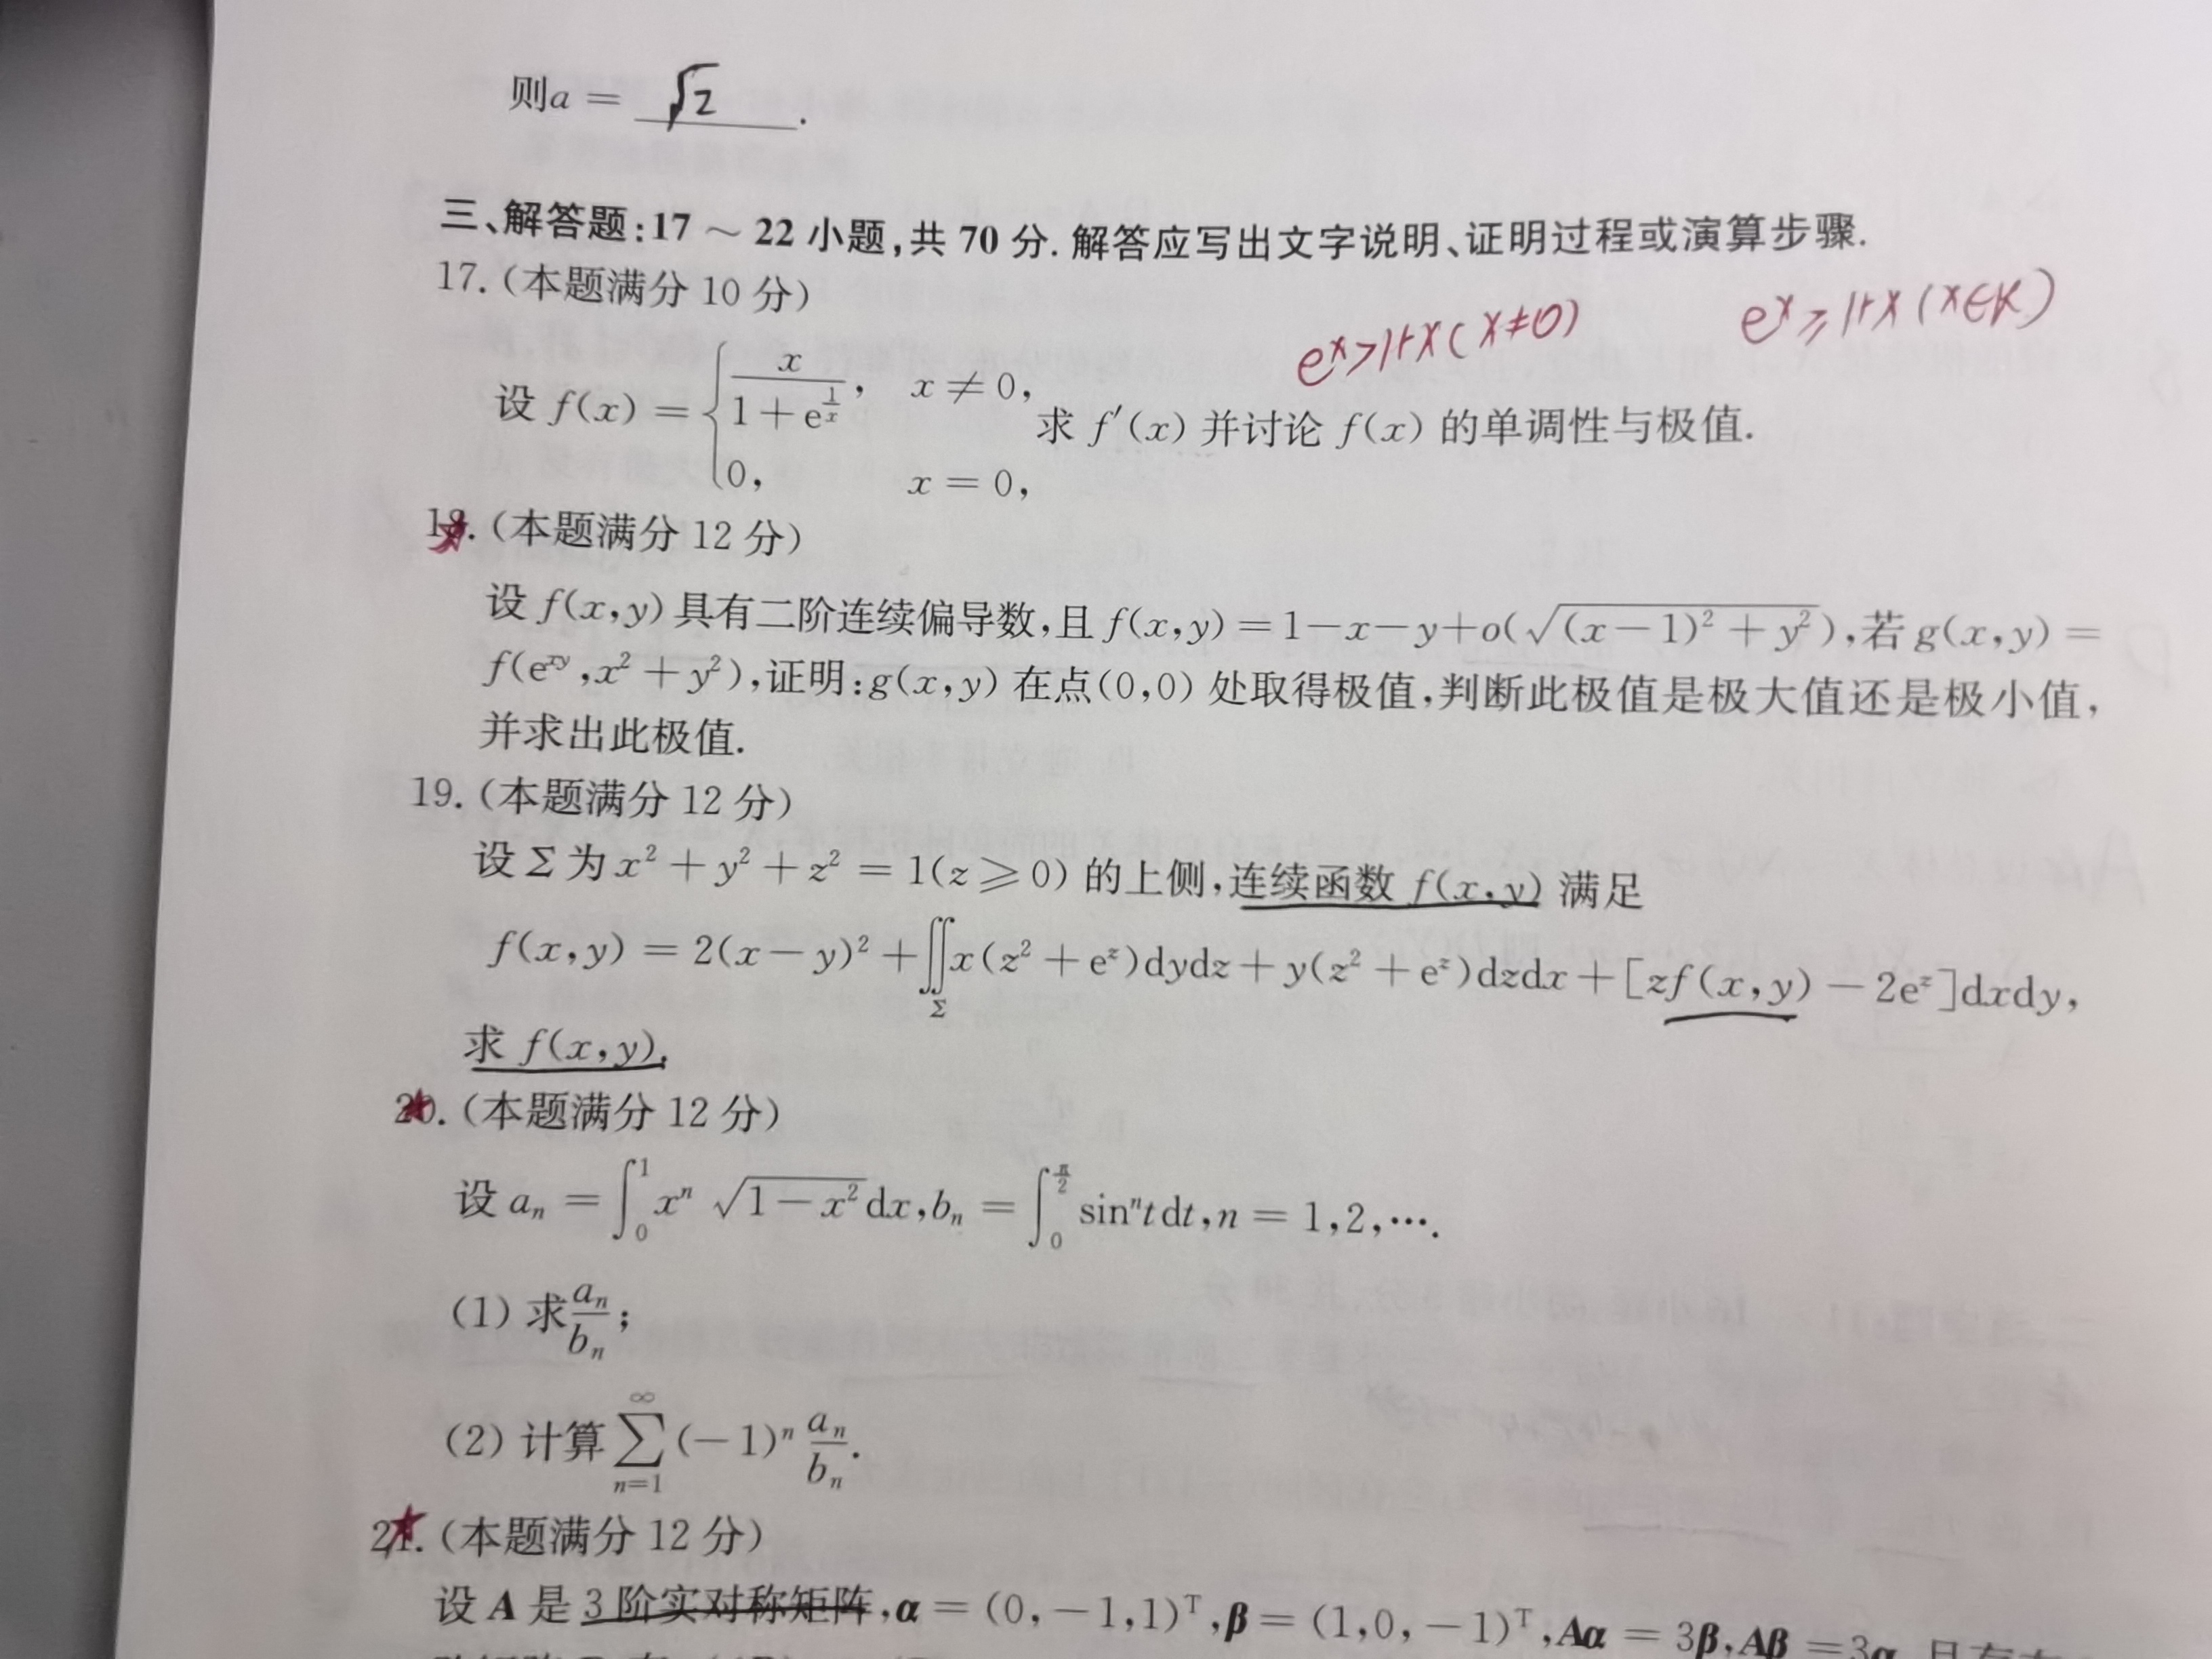 则a = √2.
三、解答题:17 ~ 22 小题,共 70 分. 解答应写出文字说明、证明过程或演算步骤.
17. (本题满分 10 分)
e^x>1+x(x≠0) e^x≥1+x(x∈R)
设 f(x) = { x/(1+e^(1/x)), x ≠ 0, 0, x = 0, 求 f′(x) 并讨论 f(x) 的单调性与极值.
18. (本题满分 12 分)
设 f(x,y) 具有二阶连续偏导数,且 f(x,y)=1-x-y+o(√((x-1)²+y²)),若 g(x,y) =
f(e^(xy),x²+y²),证明:g(x,y) 在点(0,0) 处取得极值,判断此极值是极大值还是极小值,
并求出此极值.
19. (本题满分 12 分)
设 Σ 为 x² + y² + z² = 1(z ≥ 0) 的上侧,连续函数 f(x,y) 满足
f(x,y) = 2(x-y)² + ∬_Σ x(z² + e^z)dydz + y(z² + e^z)dzdx + [zf(x,y) - 2e^z]dxdy,
求 f(x,y).
20. (本题满分 12 分)
设 a_n = ∫_0^1 x^n √(1-x²)dx,b_n = ∫_0^(π/2) sin^n tdt,n = 1,2,⋯.
(1) 求 a_n/b_n;
(2) 计算 ∑_(n=1)^∞ (-1)^n a_n/b_n.
21. (本题满分 12 分)
设 A 是 3 阶实对称矩阵,α = (0,-1,1)^T,β = (1,0,-1)^T,Aα = 3β,Aβ = 3α